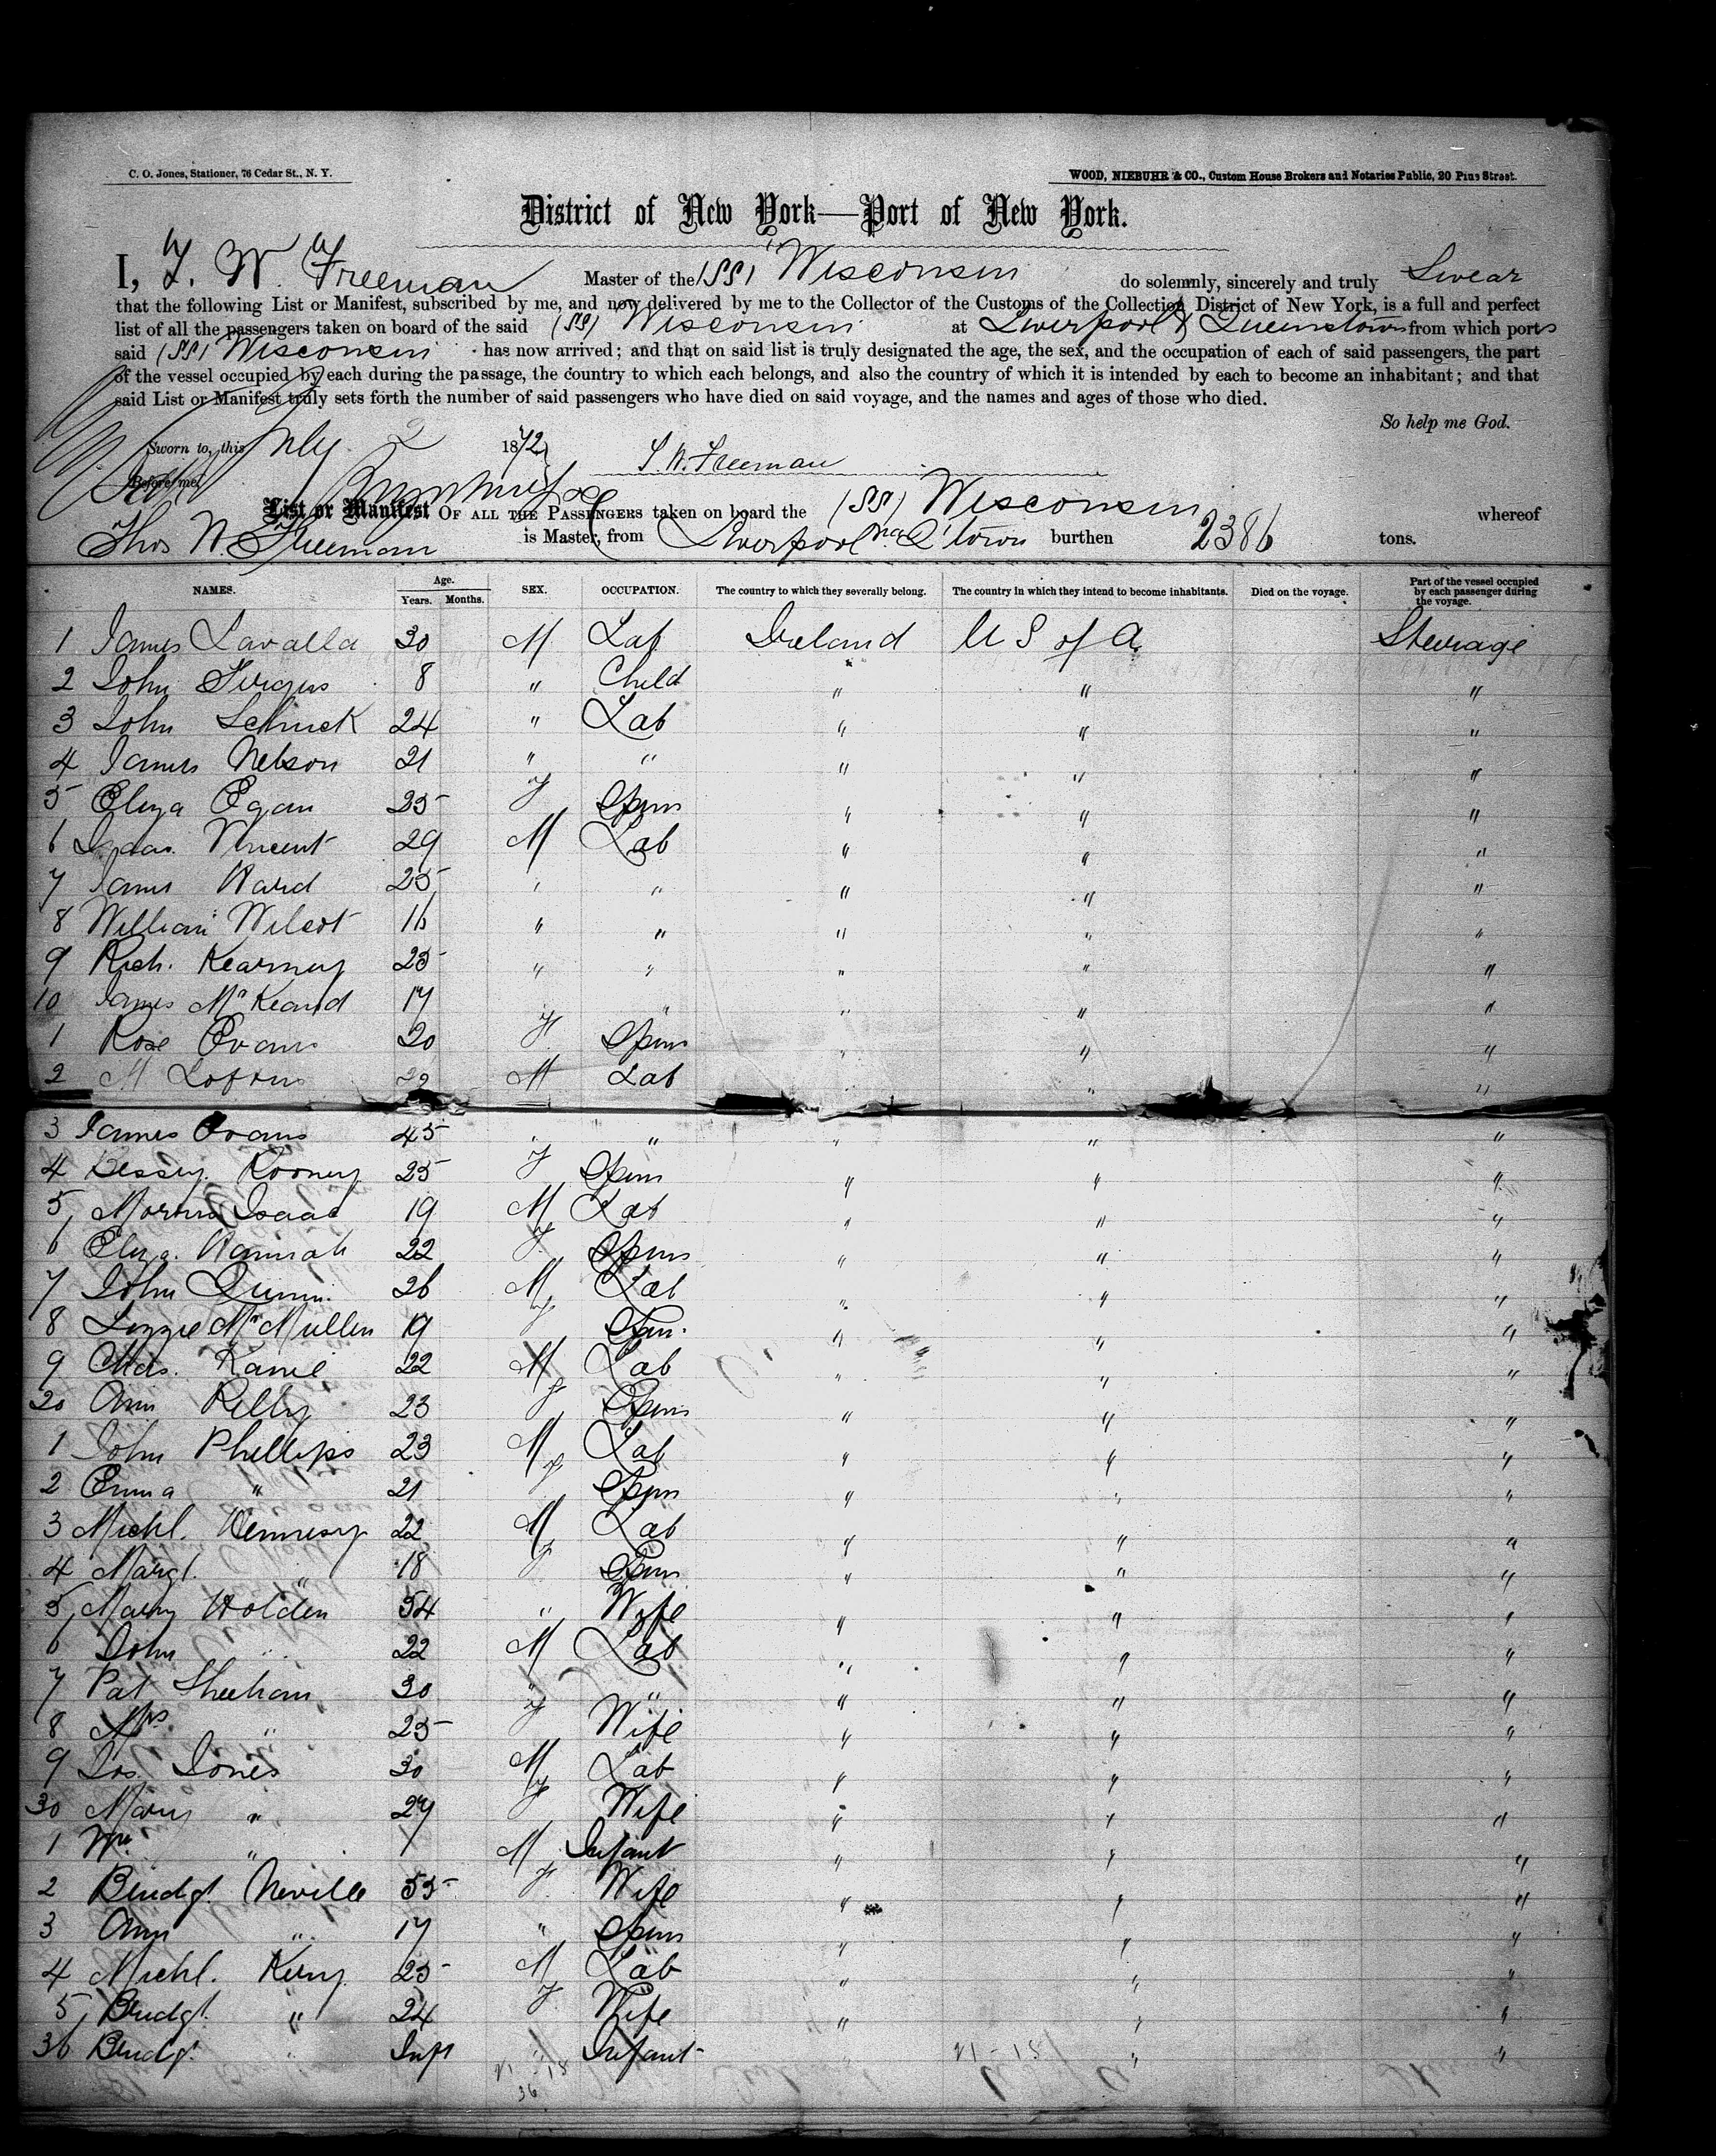 C. O. Jones, Stationer, 76 Cedar St., N. Y.
WOOD, NIEBUHR & CO., Custom House Brokers and Notaries Public, 20 Pine Street.
District of New York—Port of New York.
I, T. W. Freeman Master of the (SS) Wisconsin do solemnly, sincerely and truly Swear
that the following List or Manifest, subscribed by me, and now delivered by me to the Collector of the Customs of the Collection District of New York, is a full and perfect
list of all the passengers taken on board of the said (SS) Wisconsin at Liverpool & Queenstown from which ports
said (SS) Wisconsin has now arrived; and that on said list is truly designated the age, the sex, and the occupation of each of said passengers, the part
of the vessel occupied by each during the passage, the country to which each belongs, and also the country of which it is intended by each to become an inhabitant; and that
said List or Manifest truly sets forth the number of said passengers who have died on said voyage, and the names and ages of those who died.
So help me God.
Sworn to, this July 2 1872
T. W. Freeman
Before me,
List or Manifest OF ALL THE PASSENGERS taken on board the (SS) Wisconsin whereof
Thos W. Freeman is Master, from Liverpool and Q'town burthen 2386 tons.
NAMES. Age. Years. Months. SEX. OCCUPATION. The country to which they severally belong. The country in which they intend to become inhabitants. Died on the voyage. Part of the vessel occupied by each passenger during the voyage.
1 James Lavalla 30 M Lab Ireland U S of A. Steerage
2 John Fergus 8 " Child " " "
3 John Schuck 24 " Lab " " "
4 James Nelson 21 " " " " "
5 Eliza Egan 25 F Spins " " "
6 Vincent 29 M Lab " " "
7 James Ward 25 " " " " "
8 William Wilcot 16 " " " " "
9 Rich. Kearney 25 " " " " "
10 James McKeand 17 " " " " "
1 Rose Evans 20 F Spins " " "
2 M Loftus 22 M Lab " "
3 James Evans 45 " " " " "
4 Bessy Rooney 25 F Spins " " "
5 Morris Isaac 19 M Lab " " "
6 Eliza Hannah 22 F Spins " " "
7 John Quinn 26 M Lab " " "
8 Lizzie McMullen 19 F Spin. " " "
9 Chas. Kane 22 M Lab " " "
20 Ann Kelly 23 F Spins " " "
1 John Phillips 23 M Lab " " "
2 Emma " 21 F Spins " " "
3 Michl. Hennesy 22 M Lab " " "
4 Margt. " 18 F Spins " " "
5 Mary Holden 54 " Wife " " "
6 John " 22 M Lab " " "
7 Pat Sheehan 30 " " " " "
8 Mrs " 25 F Wife " " "
9 Jos. Jones 30 M Lab " " "
30 Mary " 27 F Wife " " "
1 Wm " 1 M Infant " " "
2 Bridgt. Neville 55 F Wife " " "
3 Ann " 17 " Spins " " "
4 Michl. King 25 M Lab " " "
5 Bridgt. " 24 F Wife " " "
36 Bridgt. " Inft " Infant " " "
21 - 15
36
21 - 15